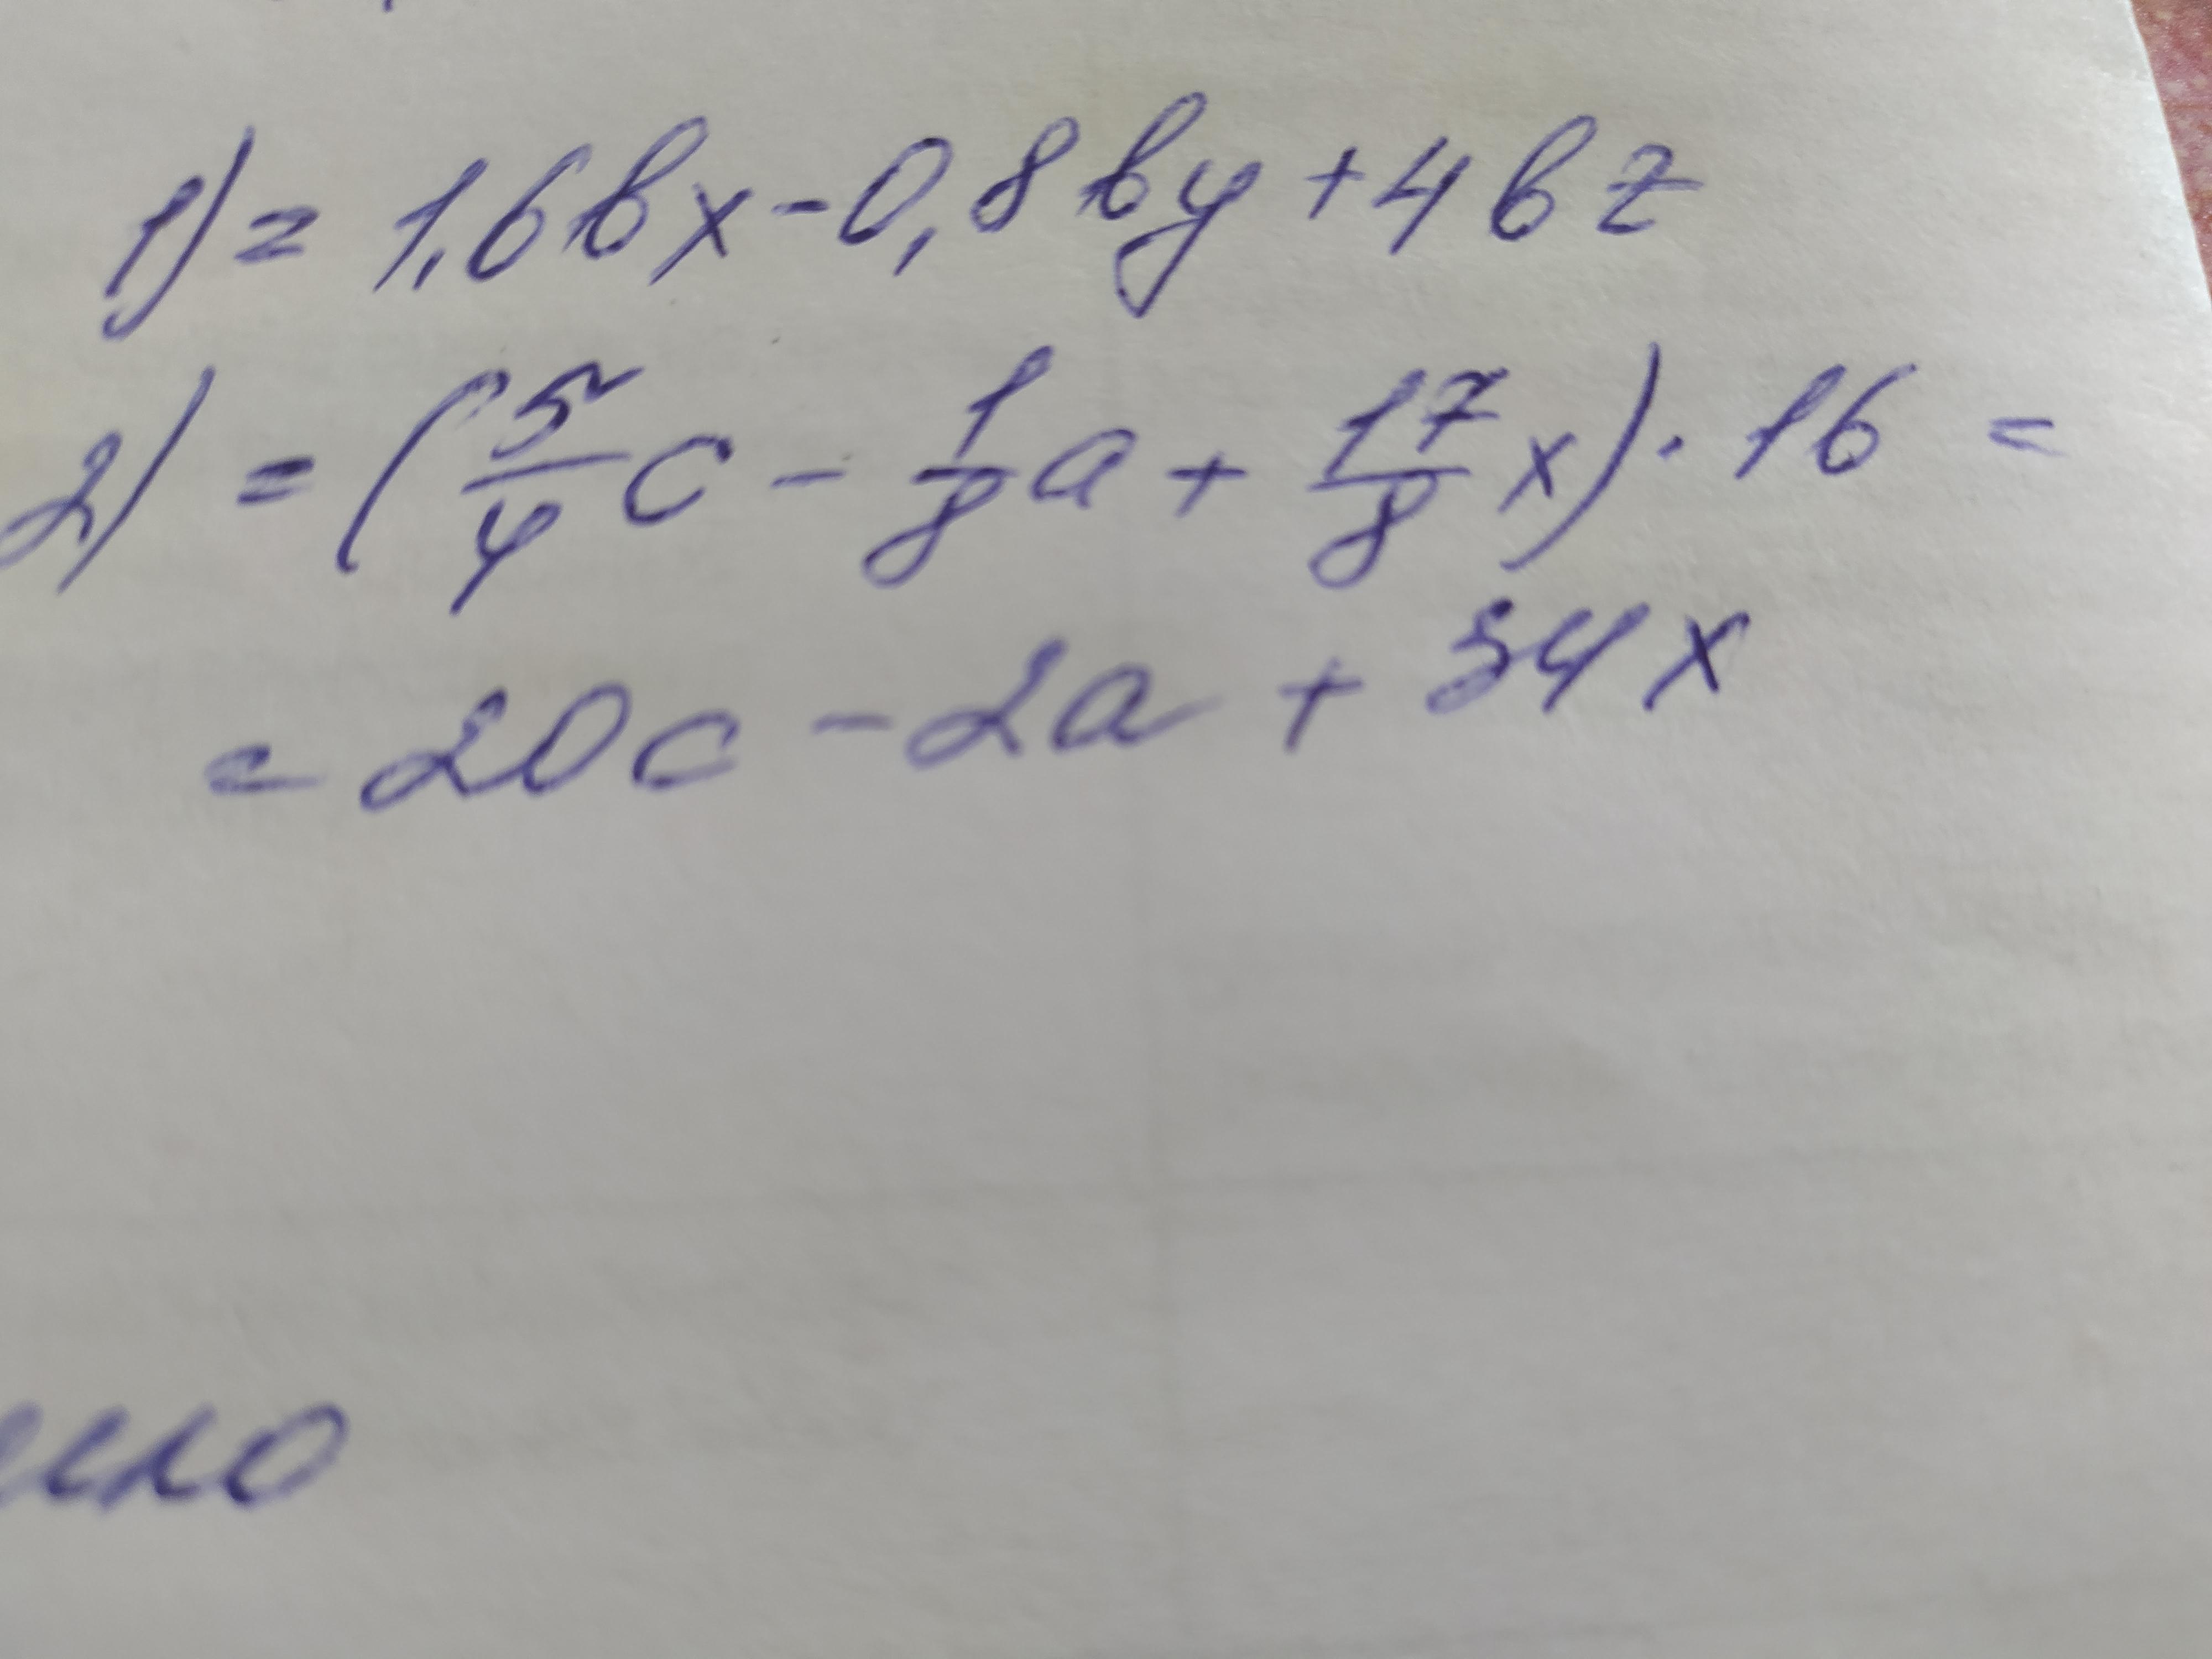 1) = 1,6bx - 0,8by + 4bz
2) = (5/4 c - 1/8 a + 17/8 x) · 16 =
= 20c - 2a + 34x